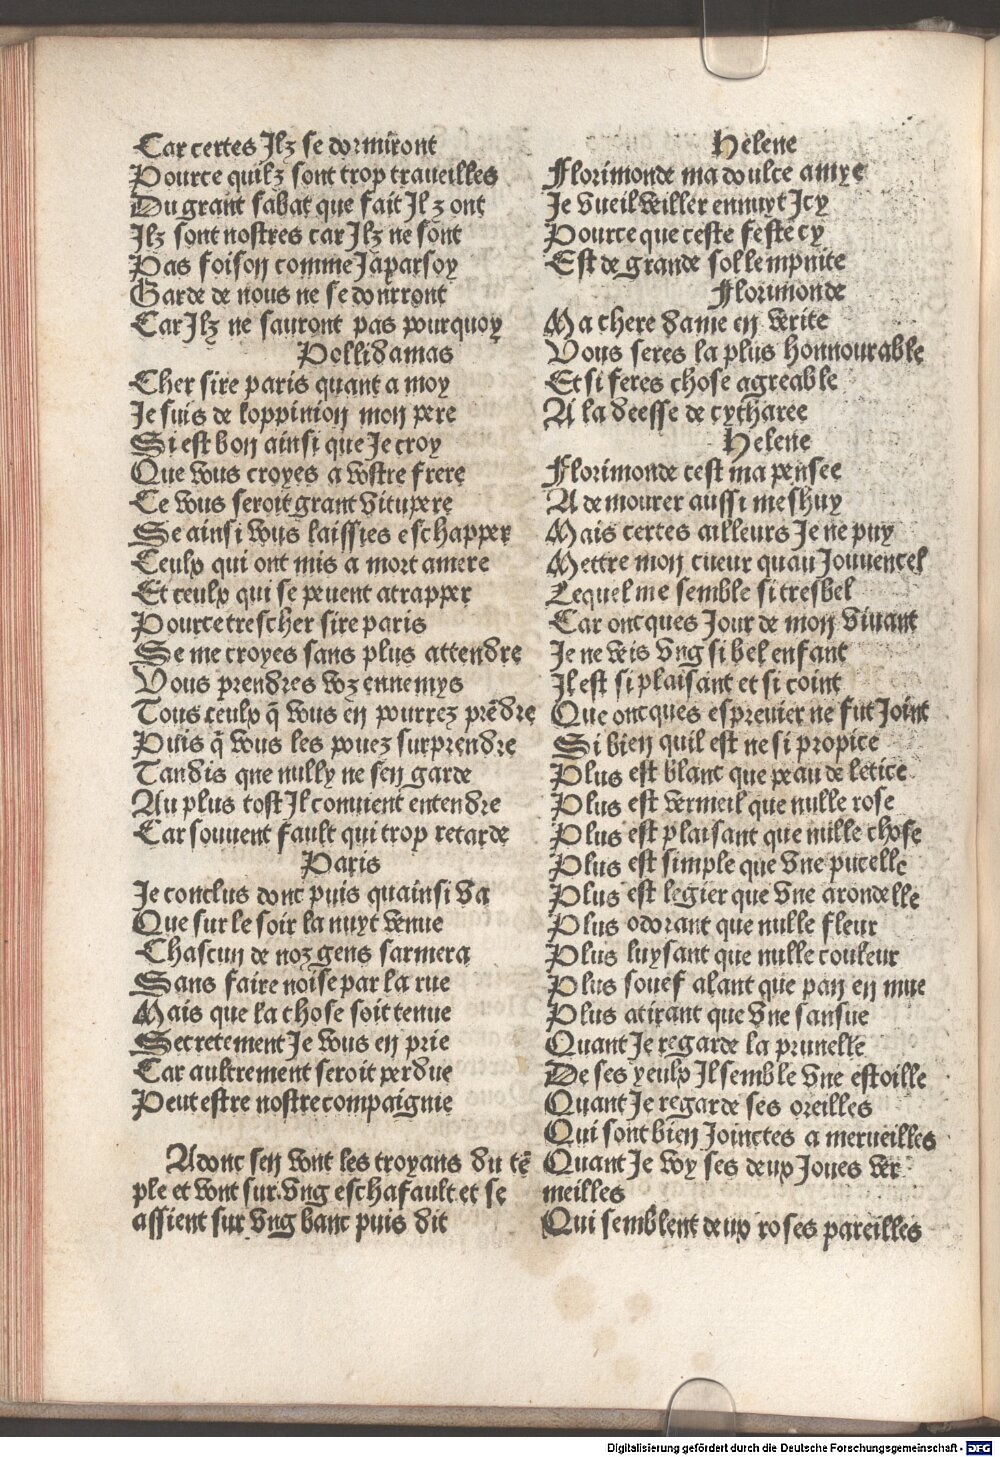 Car certes Jlz se dormiront
Pource quilz sont trop traueilles
Du grant sabat que fait Jlz ont
Jlz sont nostres car Jlz ne sont
Pas foison comme Japarsoy
Garde de nous ne se donrront
Car Jlz ne sauront pas pourquoy
Pollidamas
Cher sire paris quant a moy
Je suis de loppinion mon pere
Si est bon ainsi que Je croy
Que vous croyes a vostre frere
Ce vous seroit grant vitupere
Se ainsi vous laissies eschapper
Ceulx qui ont mis a mort amere
Et ceulx qui se peuent atrapper
Pource trescher sire paris
Se me croyes sans plus attendre
Vous prendres voz ennemys
Tous ceulx q̄ vous en pourrez prēdre
Puis q̄ vous les pouez surprendre
Tandis que nully ne sen garde
Au plus tost Jl conuient entendre
Car souuent fault qui trop retarde
Paris
Je conclus donc puis quainsi va
Que sur le soir la nuyt venue
Chascun de noz gens sarmera
Sans faire noise par la rue
Mais que la chose soit tenue
Secretement Je vous en prie
Car aultrement seroit perdue
Peut estre nostre compaignie
Adonc sen vont les troyans du tē
ple et vont sur vng eschafault et se
assient sur vng banc puis dit
Helene
Florimonde ma doulce amye
Je vueil veiller ennuyt Jcy
Pource que ceste feste cy
Est de grande sollempnite
Florimonde
Ma chere dame en verite
Vous seres la plus honnourable
Et si feres chose agreable
A la deesse de cytharee
Helene
Florimonde cest ma pensee
A demourer aussi meshuy
Mais certes ailleurs Je ne puy
Mettre mon cueur quau Jouuencel
Lequel me semble si tresbel
Car oncques Jour de mon viuant
Je ne veis vng si bel enfant
Jl est si plaisant et si coint
Que oncques espreuier ne fut Joint
Si bien quil est ne si propice
Plus est blanc que peau de letice
Plus est vermeil que nulle rose
Plus est plaisant que nulle chose
Plus est simple que vne pucelle
Plus est legier que vne arondelle
Plus odorant que nulle fleur
Plus luysant que nulle couleur
Plus souef alant que pan en mue
Plus atirant que vne sansue
Quant Je regarde la prunelle
De ses yeulx Jl semble vne estoille
Quant Je regarde ses oreilles
Qui sont bien Joinctes a merueilles
Quant Je voy ses deux Joues ver
meilles
Qui semblent deux roses pareilles
Digitalisierung gefördert durch die Deutsche Forschungsgemeinschaft - DFG